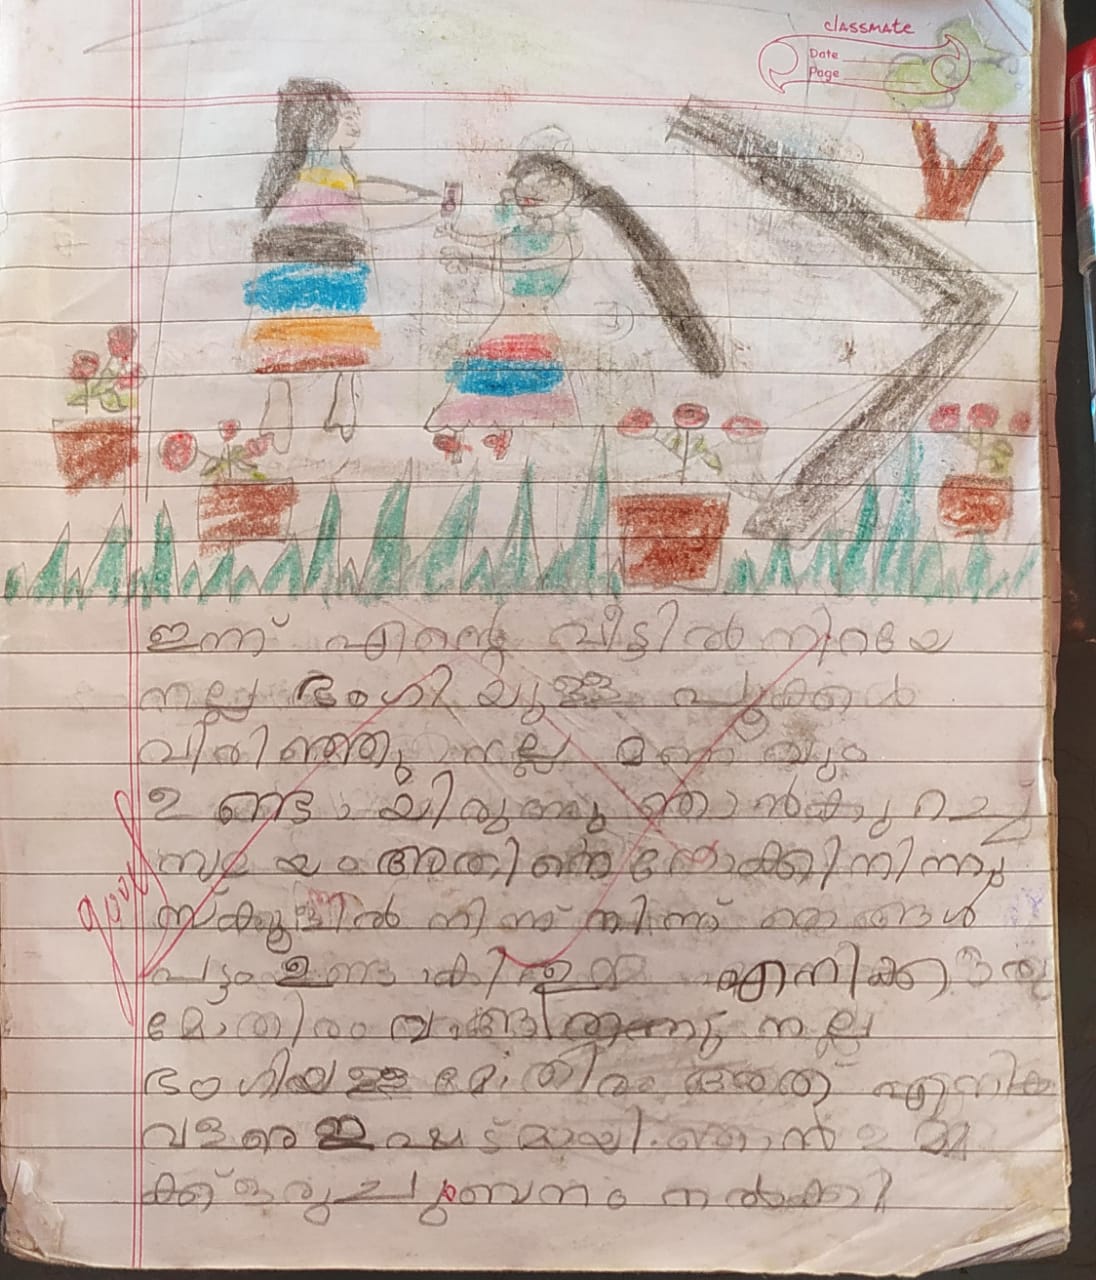 classmate
Date
Page
ഇന്ന് എന്റെ വീട്ടിൽ നിറയെ
നല്ല ഭംഗിയുള്ള പൂക്കൾ
വിരിഞ്ഞു നല്ല മണവും
ഉണ്ടായിരുന്നു ഞാൻ കുറച്ച്
സമയം അതിനെ നോക്കി നിന്നു
സ്കൂളിൽ നിന്ന് നിന്ന് ഞങ്ങൾ
good
പട്ടം ഉണ്ടാക്കി ഉമ്മ എനിക്ക് ഒരു
മോതിരം വാങ്ങി തന്നു നല്ല
ഭംഗിയള്ള മോതിരം അത് എനിക്ക
വളരെ ഇഷ്ടമായി. ഞാൻ ഉമ്മ
ക്ക് ഒരു ചുംബനം നൽകി